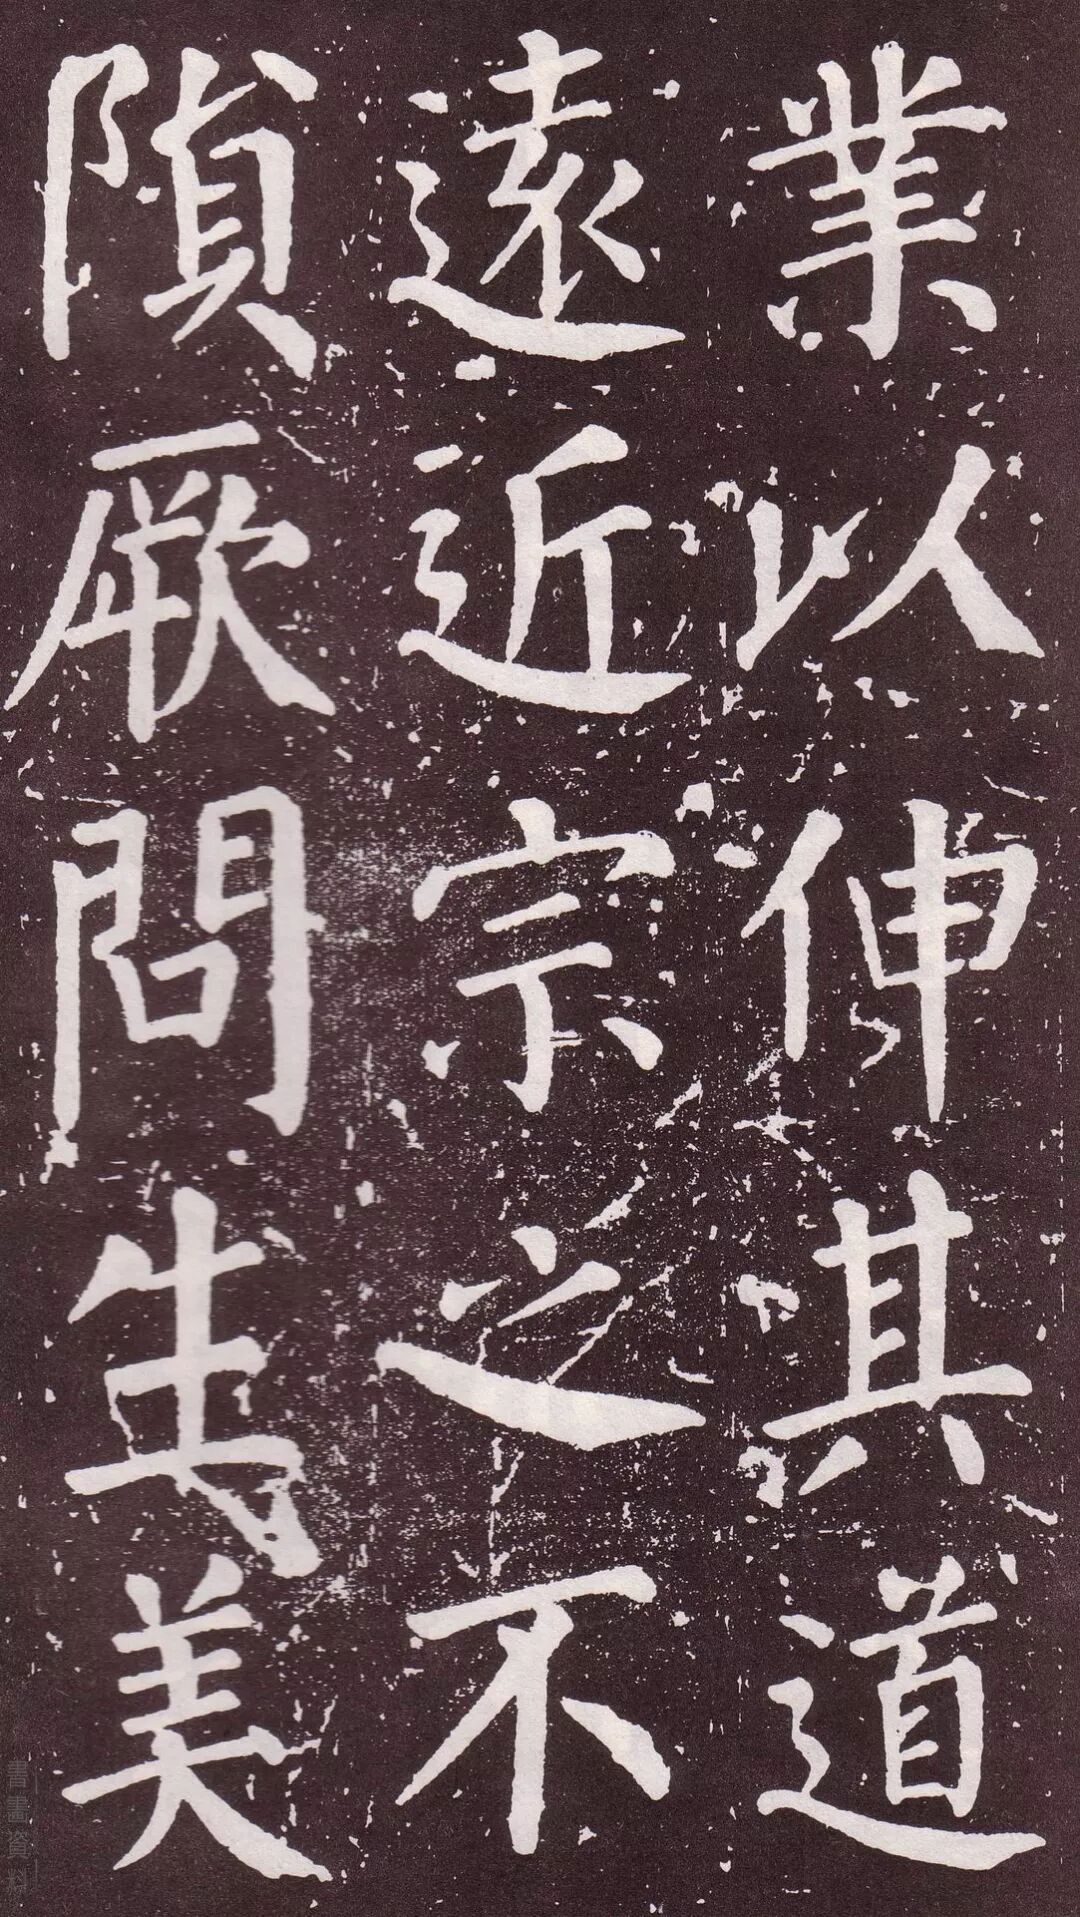 業以伸其道
遠近宗之不
隕厥問生美
書畫資料